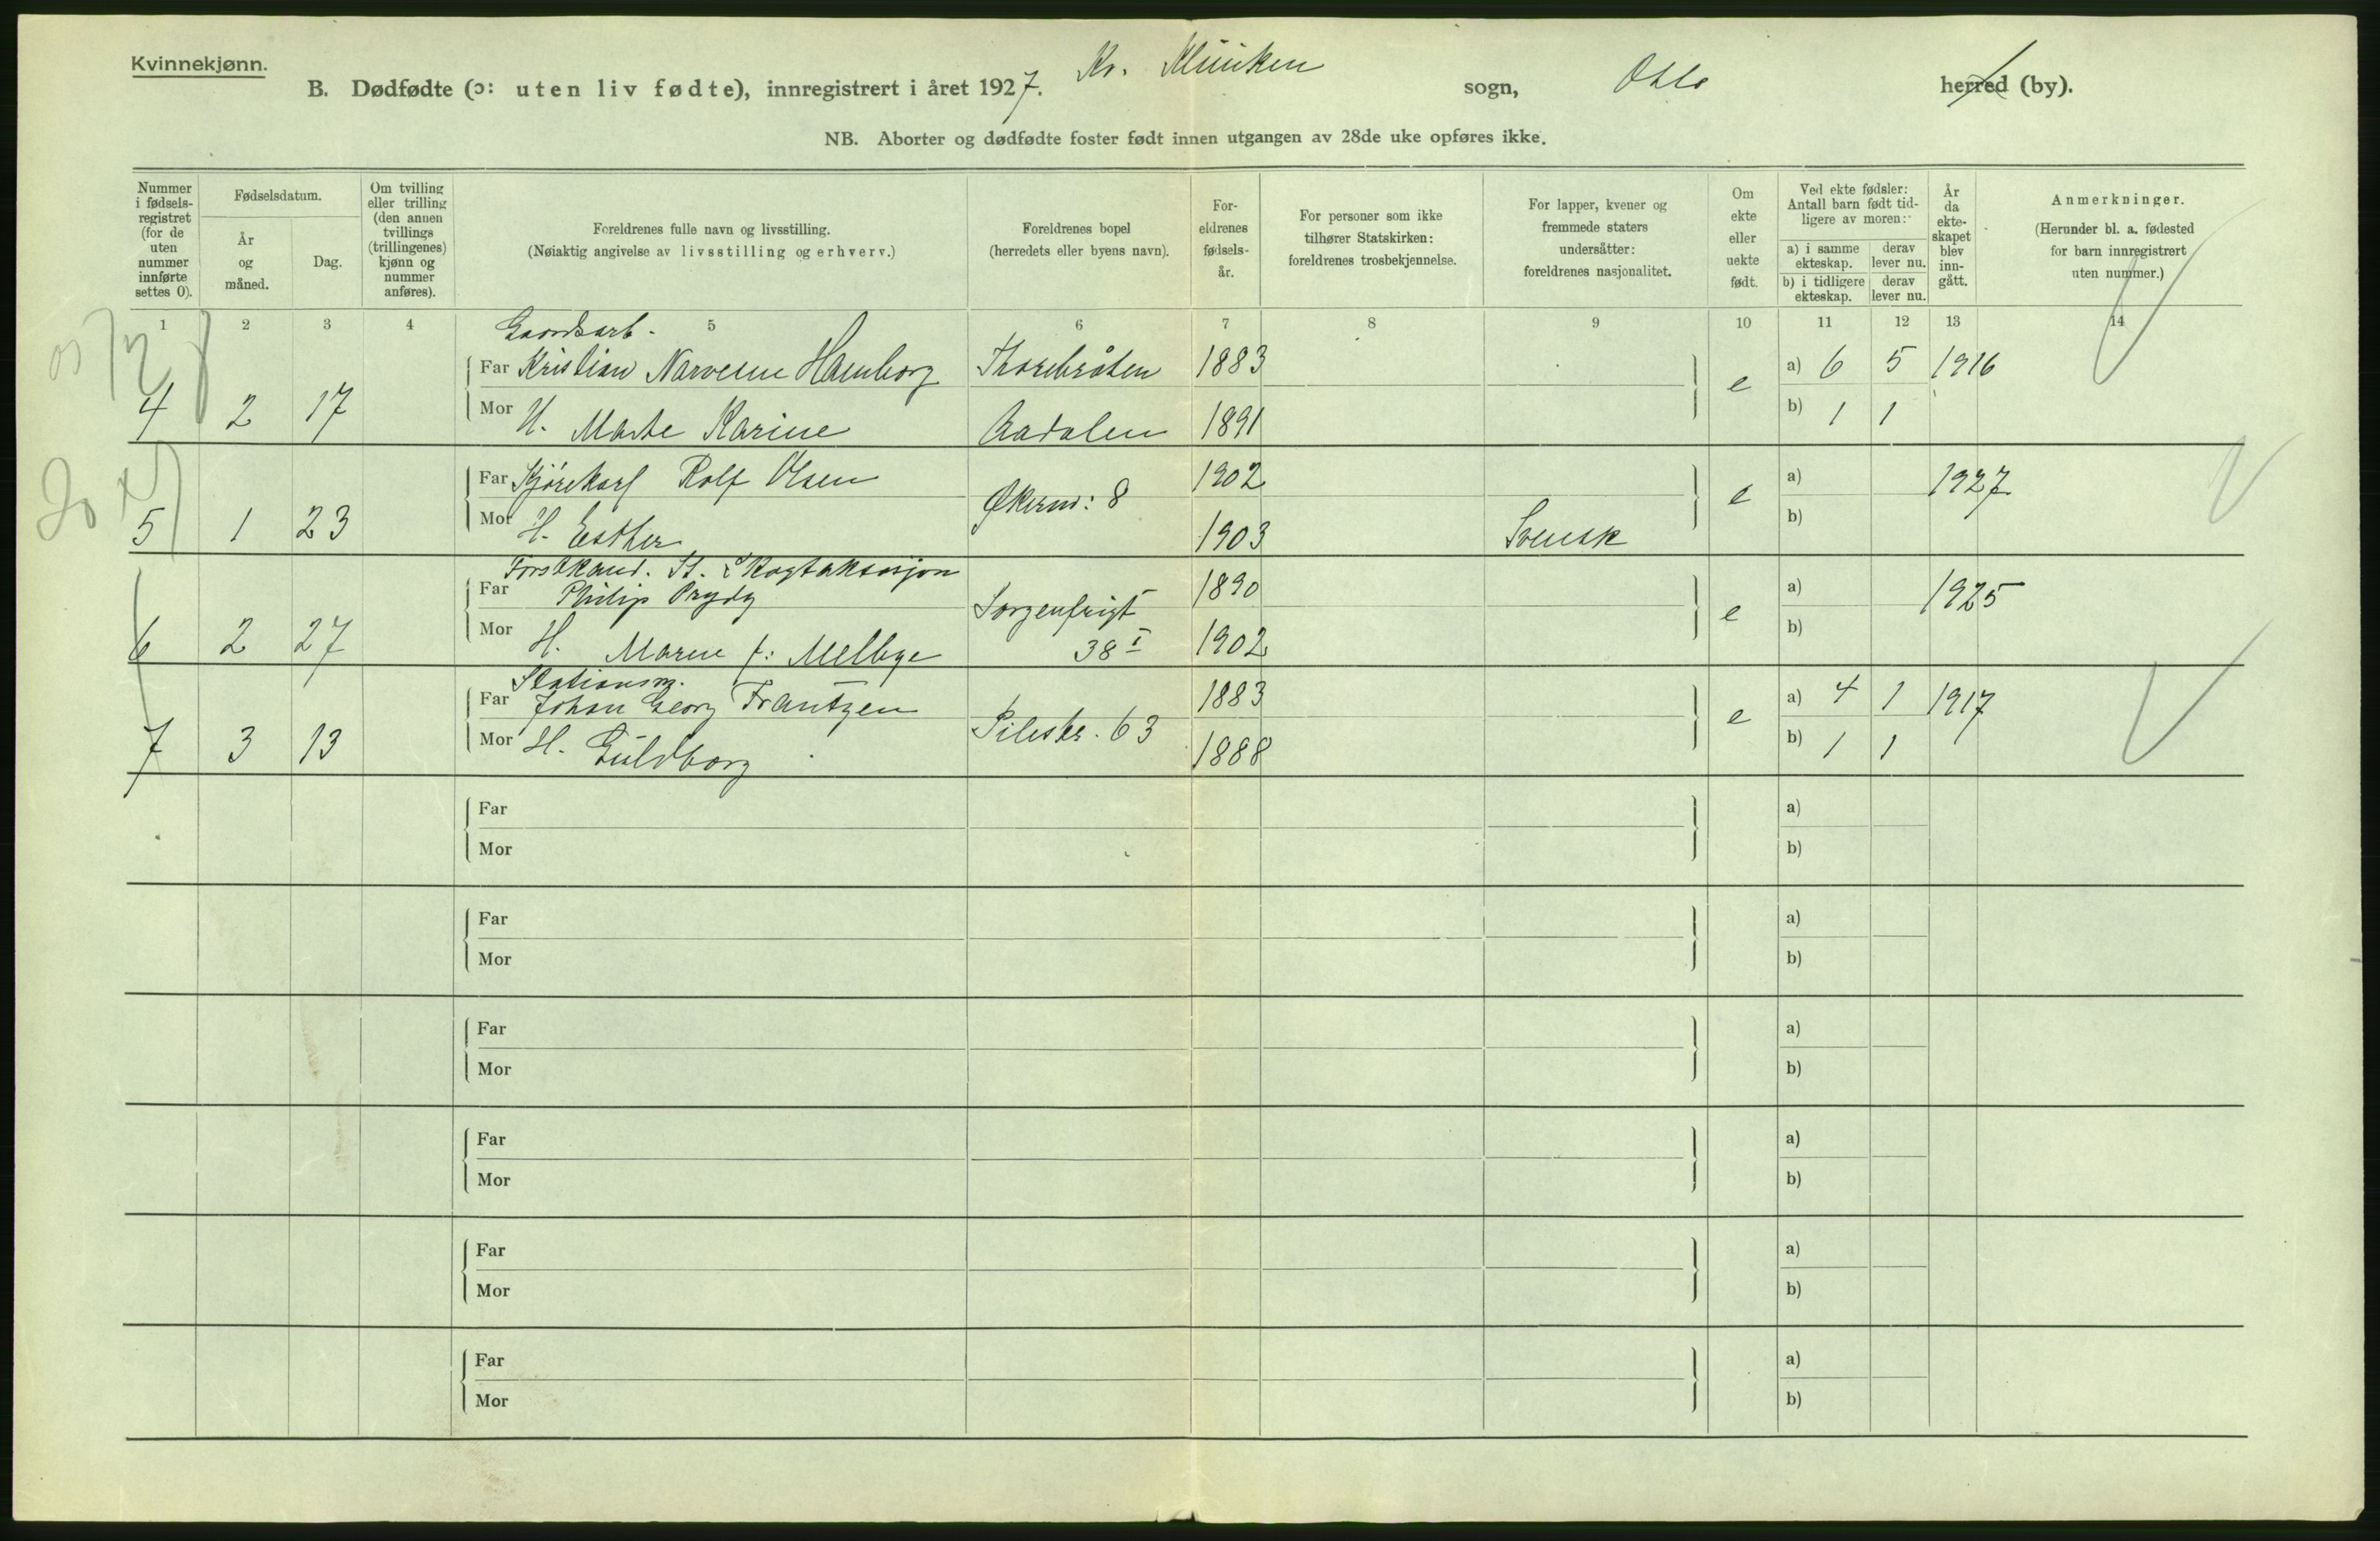 Kvinnekjønn.
B. Dødfødte (ɔ: uten liv fødte), innregistrert i året 1927. Kv. Kliniken sogn, Oslo herred (by).
NB. Aborter og dødfødte foster født innen utgangen av 28de uke opføres ikke.
Nummer i fødsels-registret (for de uten nummer innførte settes 0).
Fødselsdatum.
År og måned.
Dag.
Om tvilling eller trilling (den annen tvillings (trillingenes) kjønn og nummer anføres).
Foreldrenes fulle navn og livsstilling.
(Nøiaktig angivelse av livsstilling og erhverv.)
Foreldrenes bopel
(herredets eller byens navn).
For-eldrenes fødsels-år.
For personer som ikke tilhører Statskirken: foreldrenes trosbekjennelse.
For lapper, kvener og fremmede staters undersåtter: foreldrenes nasjonalitet.
Om ekte eller uekte født.
Ved ekte fødsler: Antall barn født tid-ligere av moren:
a) i samme ekteskap.
derav lever nu.
b) i tidligere ekteskap.
derav lever nu.
År da ekte-skapet blev inn-gått.
Anmerkninger.
(Herunder bl. a. fødested for barn innregistrert uten nummer.)
1 2 3 4 5 6 7 8 9 10 11 12 13 14
Gaardsarb.
Far Kristian Narvesen Hamborg Thorebråten 1883 a) 6 5 1916
4 2 17 Mor H. Marte Karine Aadalen 1891 e b) 1 1
Far Kjørekarl Rolf Olsen Økernv: 8 1902 e a) 1927
5 1 23 Mor H. Esther 1903 Svensk b)
Forstkand. St. Skogtaksasjon
Far Philip Prydz Sorgenfrigt 1890 e a) 1925
6 2 27 Mor H. Maren f: Melbye 38 I 1902 b)
Stationsm.
Far Johan Georg Frantzen Pilestr. 63 1883 e a) 4 1 1917
7 3 13 Mor H. Guldborg 1888 b) 1 1
Far a)
Mor b)
Far a)
Mor b)
Far a)
Mor b)
Far a)
Mor b)
Far a)
Mor b)
Far a)
Mor b)